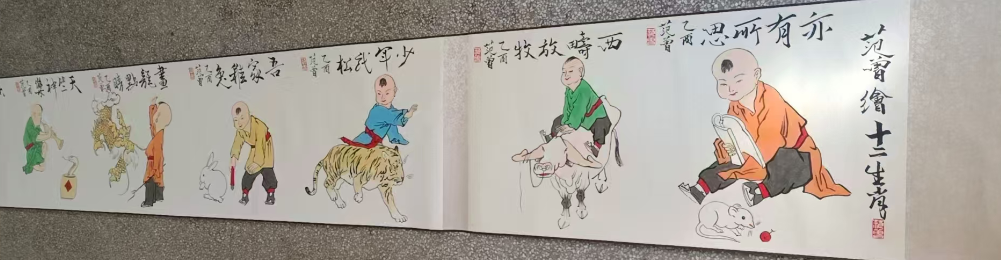 范曾繪十二生肖
亦有所思
乙酉
范曾
西疇放牧
乙酉
范曾
少年武松
乙酉
范曾
吾家雅兔
乙酉
范曾
畫龍點睛
乙酉
范曾
天竺神樂